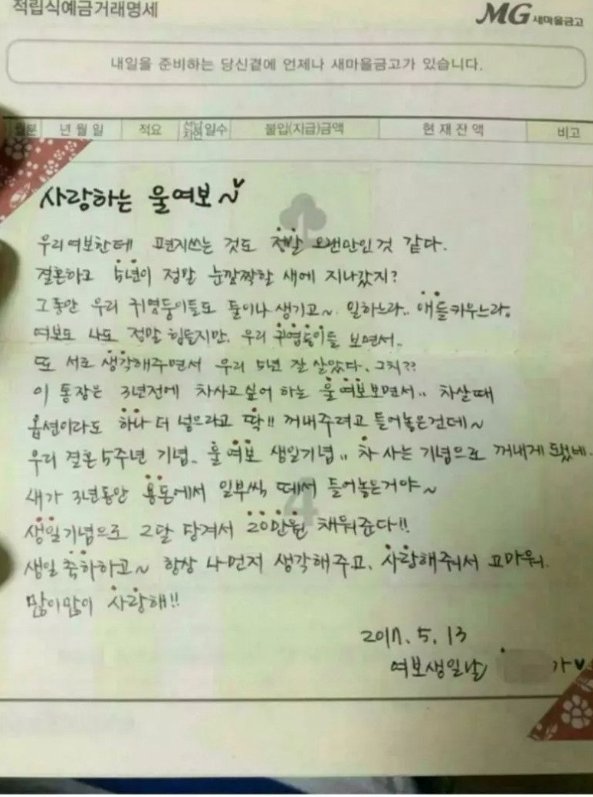 적립식예금거래명세
MG 새마을금고
내일을 준비하는 당신곁에 언제나 새마을금고가 있습니다.
월분 년월일 적요 선납 지연 일수 불입(지급)금액 현재잔액 비고
사랑하는 울여보~♥
우리여보한테 편지쓰는 것도 정말 오랜만인것 같다.
결혼하고 5년이 정말 눈깜짝할 새에 지나갔지?
그동안 우리 귀염둥이들도 둘이나 생기고~ 일하느라.. 애들키우느라,
여보도 나도 정말 힘들지만, 우리 귀염둥이들 보면서..
또 서로 생각해주면서 우리 5년 잘 살았다. 그치??
이 통장은 3년전에 차사고싶어 하는 울 여보보면서.. 차살때
옵션이라도 하나 더 넣으라고 딱!! 꺼내주려고 들어놓은건데~
우리 결혼 5주년 기념_ 울 여보 생일기념.. 차 사는 기념으로 꺼내게 됐네.
내가 3년동안 용돈에서 일부씩 떼서 들어놓은거야~
4
생일기념으로 2달 당겨서 20만원 채워준다!!
생일 축하하고~ 항상 나먼저 생각해주고, 사랑해줘서 고마워.
많이많이 사랑해!!
2017. 5. 13
여보생일날 가♥